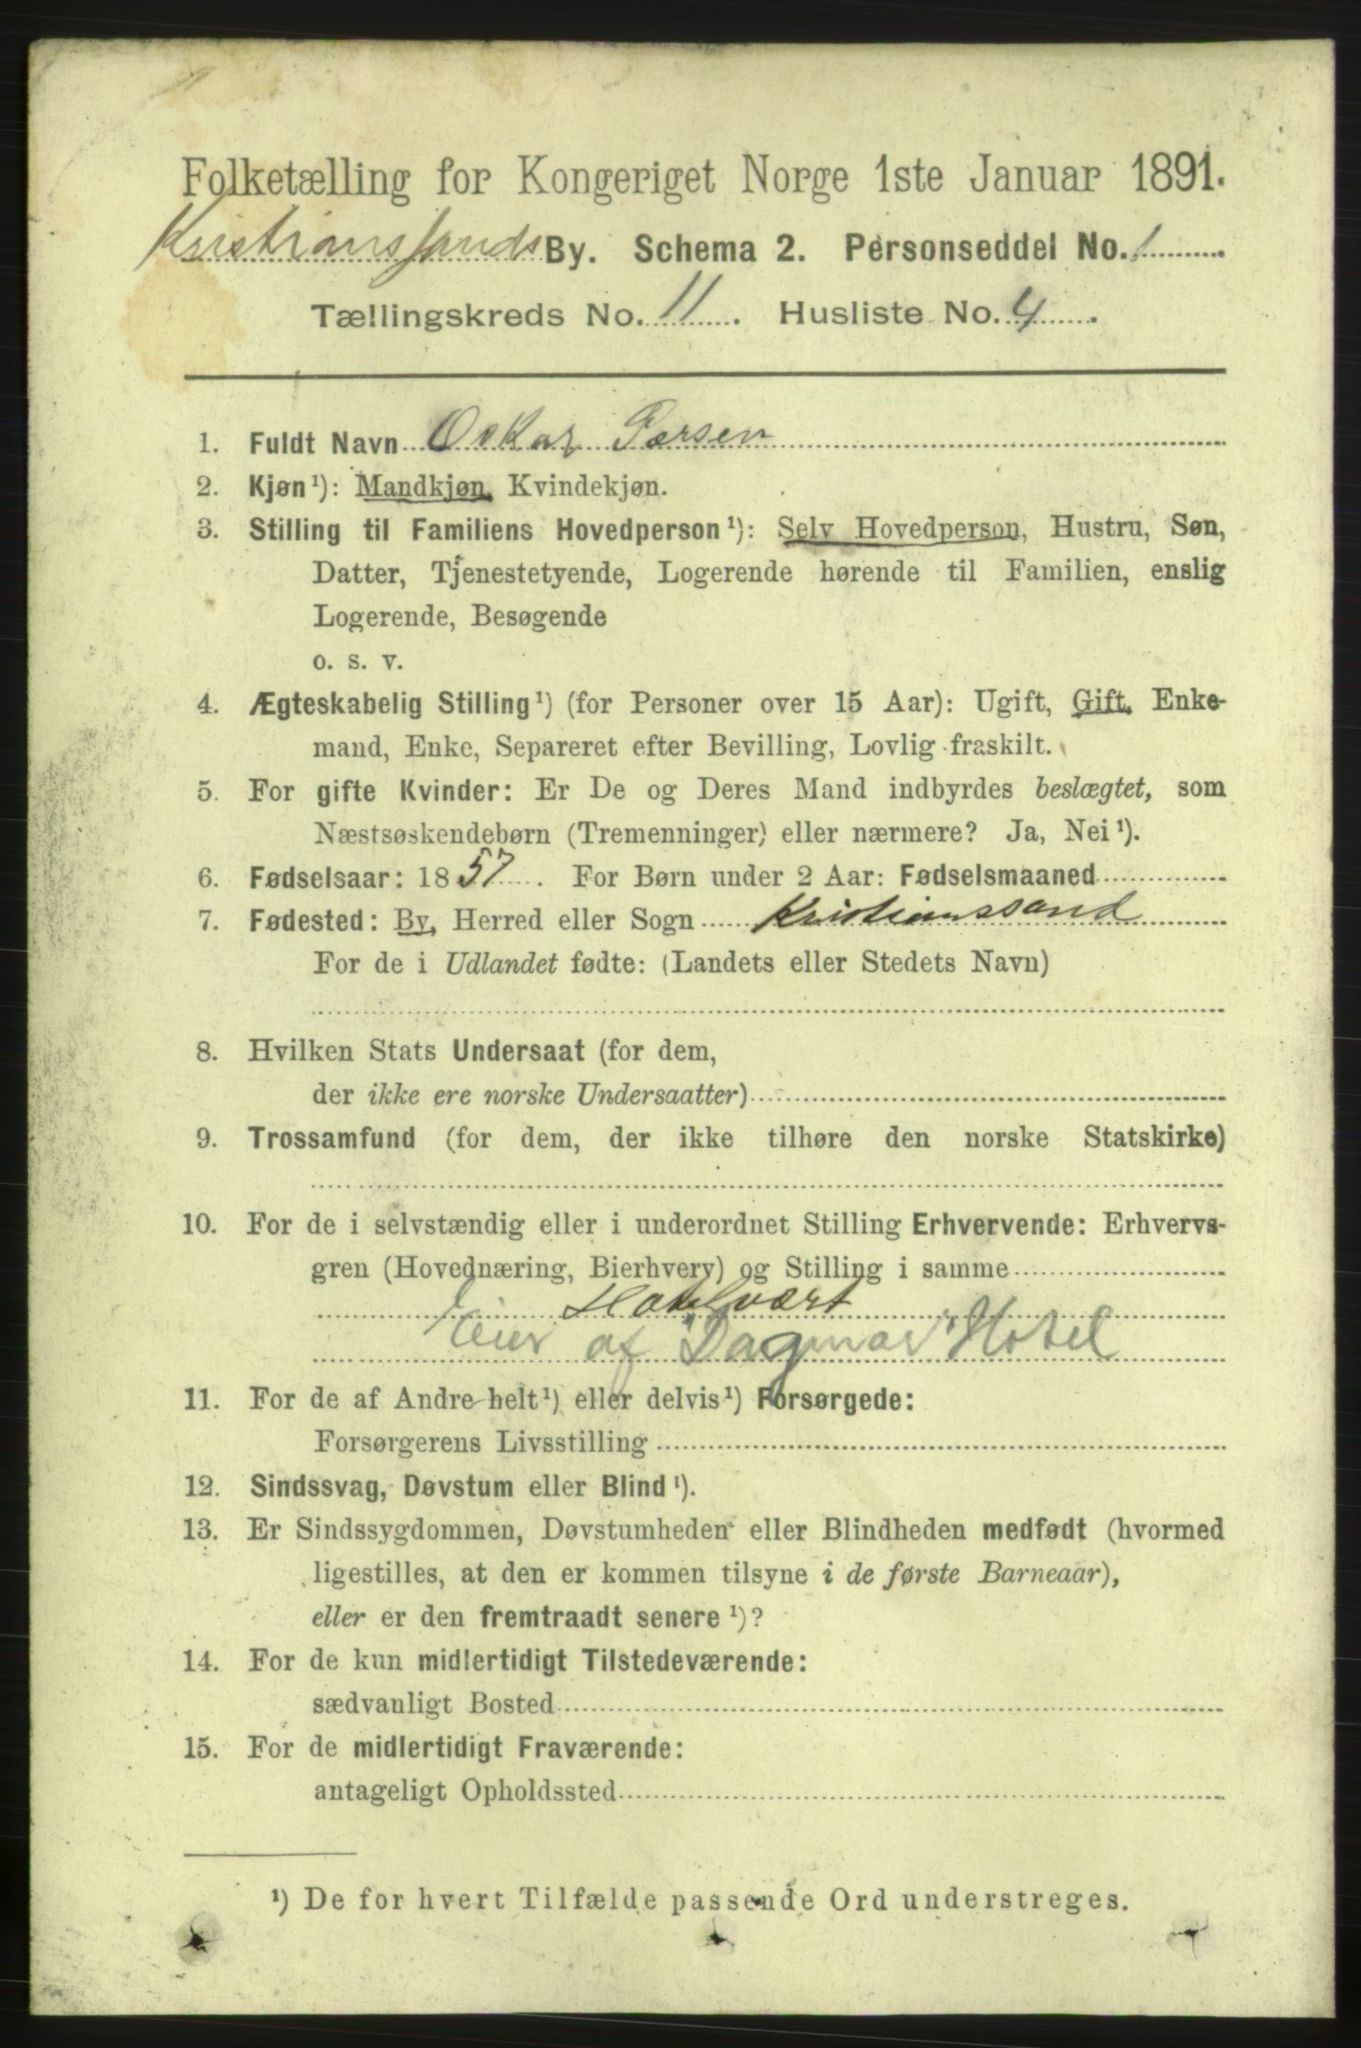 Folketælling for Kongeriget Norge 1ste Januar 1891.
Kristianssands By. Schema 2. Personseddel No. 1.
Tællingskreds No. 11. Husliste No. 4.
1. Fuldt Navn Oskar Persen
2. Kjøn¹): Mandkjøn, Kvindekjøn.
3. Stilling til Familiens Hovedperson¹): Selv Hovedperson, Hustru, Søn,
Datter, Tjenestetyende, Logerende hørende til Familien, enslig
Logerende, Besøgende
o. s. v.
4. Ægteskabelig Stilling¹) (for Personer over 15 Aar): Ugift, Gift, Enke-
mand, Enke, Separeret efter Bevilling, Lovlig fraskilt.
5. For gifte Kvinder: Er De og Deres Mand indbyrdes beslægtet, som
Næstsøskendebørn (Tremenninger) eller nærmere? Ja, Nei¹).
6. Fødselsaar: 1857. For Børn under 2 Aar: Fødselsmaaned
7. Fødested: By, Herred eller Sogn Kristianssand
For de i Udlandet fødte: (Landets eller Stedets Navn)
8. Hvilken Stats Undersaat (for dem,
der ikke ere norske Undersaatter)
9. Trossamfund (for dem, der ikke tilhøre den norske Statskirke)
10. For de i selvstændig eller i underordnet Stilling Erhvervende: Erhvervs-
gren (Hovednæring, Bierhverv) og Stilling i samme
Hotelvært
Eier af "Dagmar" Hotel
11. For de af Andre helt¹) eller delvis¹) Forsørgede:
Forsørgerens Livsstilling
12. Sindssvag, Døvstum eller Blind¹).
13. Er Sindssygdommen, Døvstumheden eller Blindheden medfødt (hvormed
ligestilles, at den er kommen tilsyne i de første Barneaar),
eller er den fremtraadt senere¹)?
14. For de kun midlertidigt Tilstedeværende:
sædvanligt Bosted
15. For de midlertidigt Fraværende:
antageligt Opholdssted
¹) De for hvert Tilfælde passende Ord understreges.